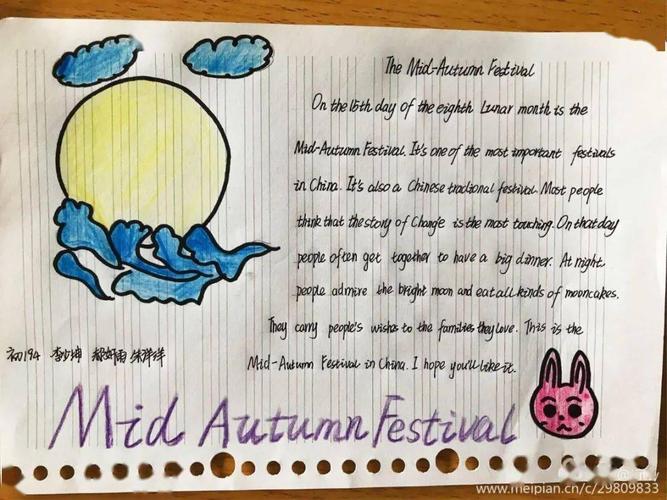 The Mid-Autumn Festival
On the 15th day of the eighth Lunar month is the
Mid-Autumn Festival. It's one of the most important festivals
in China. It's also a Chinese tradional festival. Most people
think that the story of Change is the most touching. On that day
people often get together to have a big dinner. At night
people admire the bright moon and eat all kinds of mooncakes.
They carry people's wishs to the families they love. This is the
Mid-Autumn Festival in China. I hope you'll like it.
初194
Mid Autumn Festival
www.meipian.cn/c/29809833